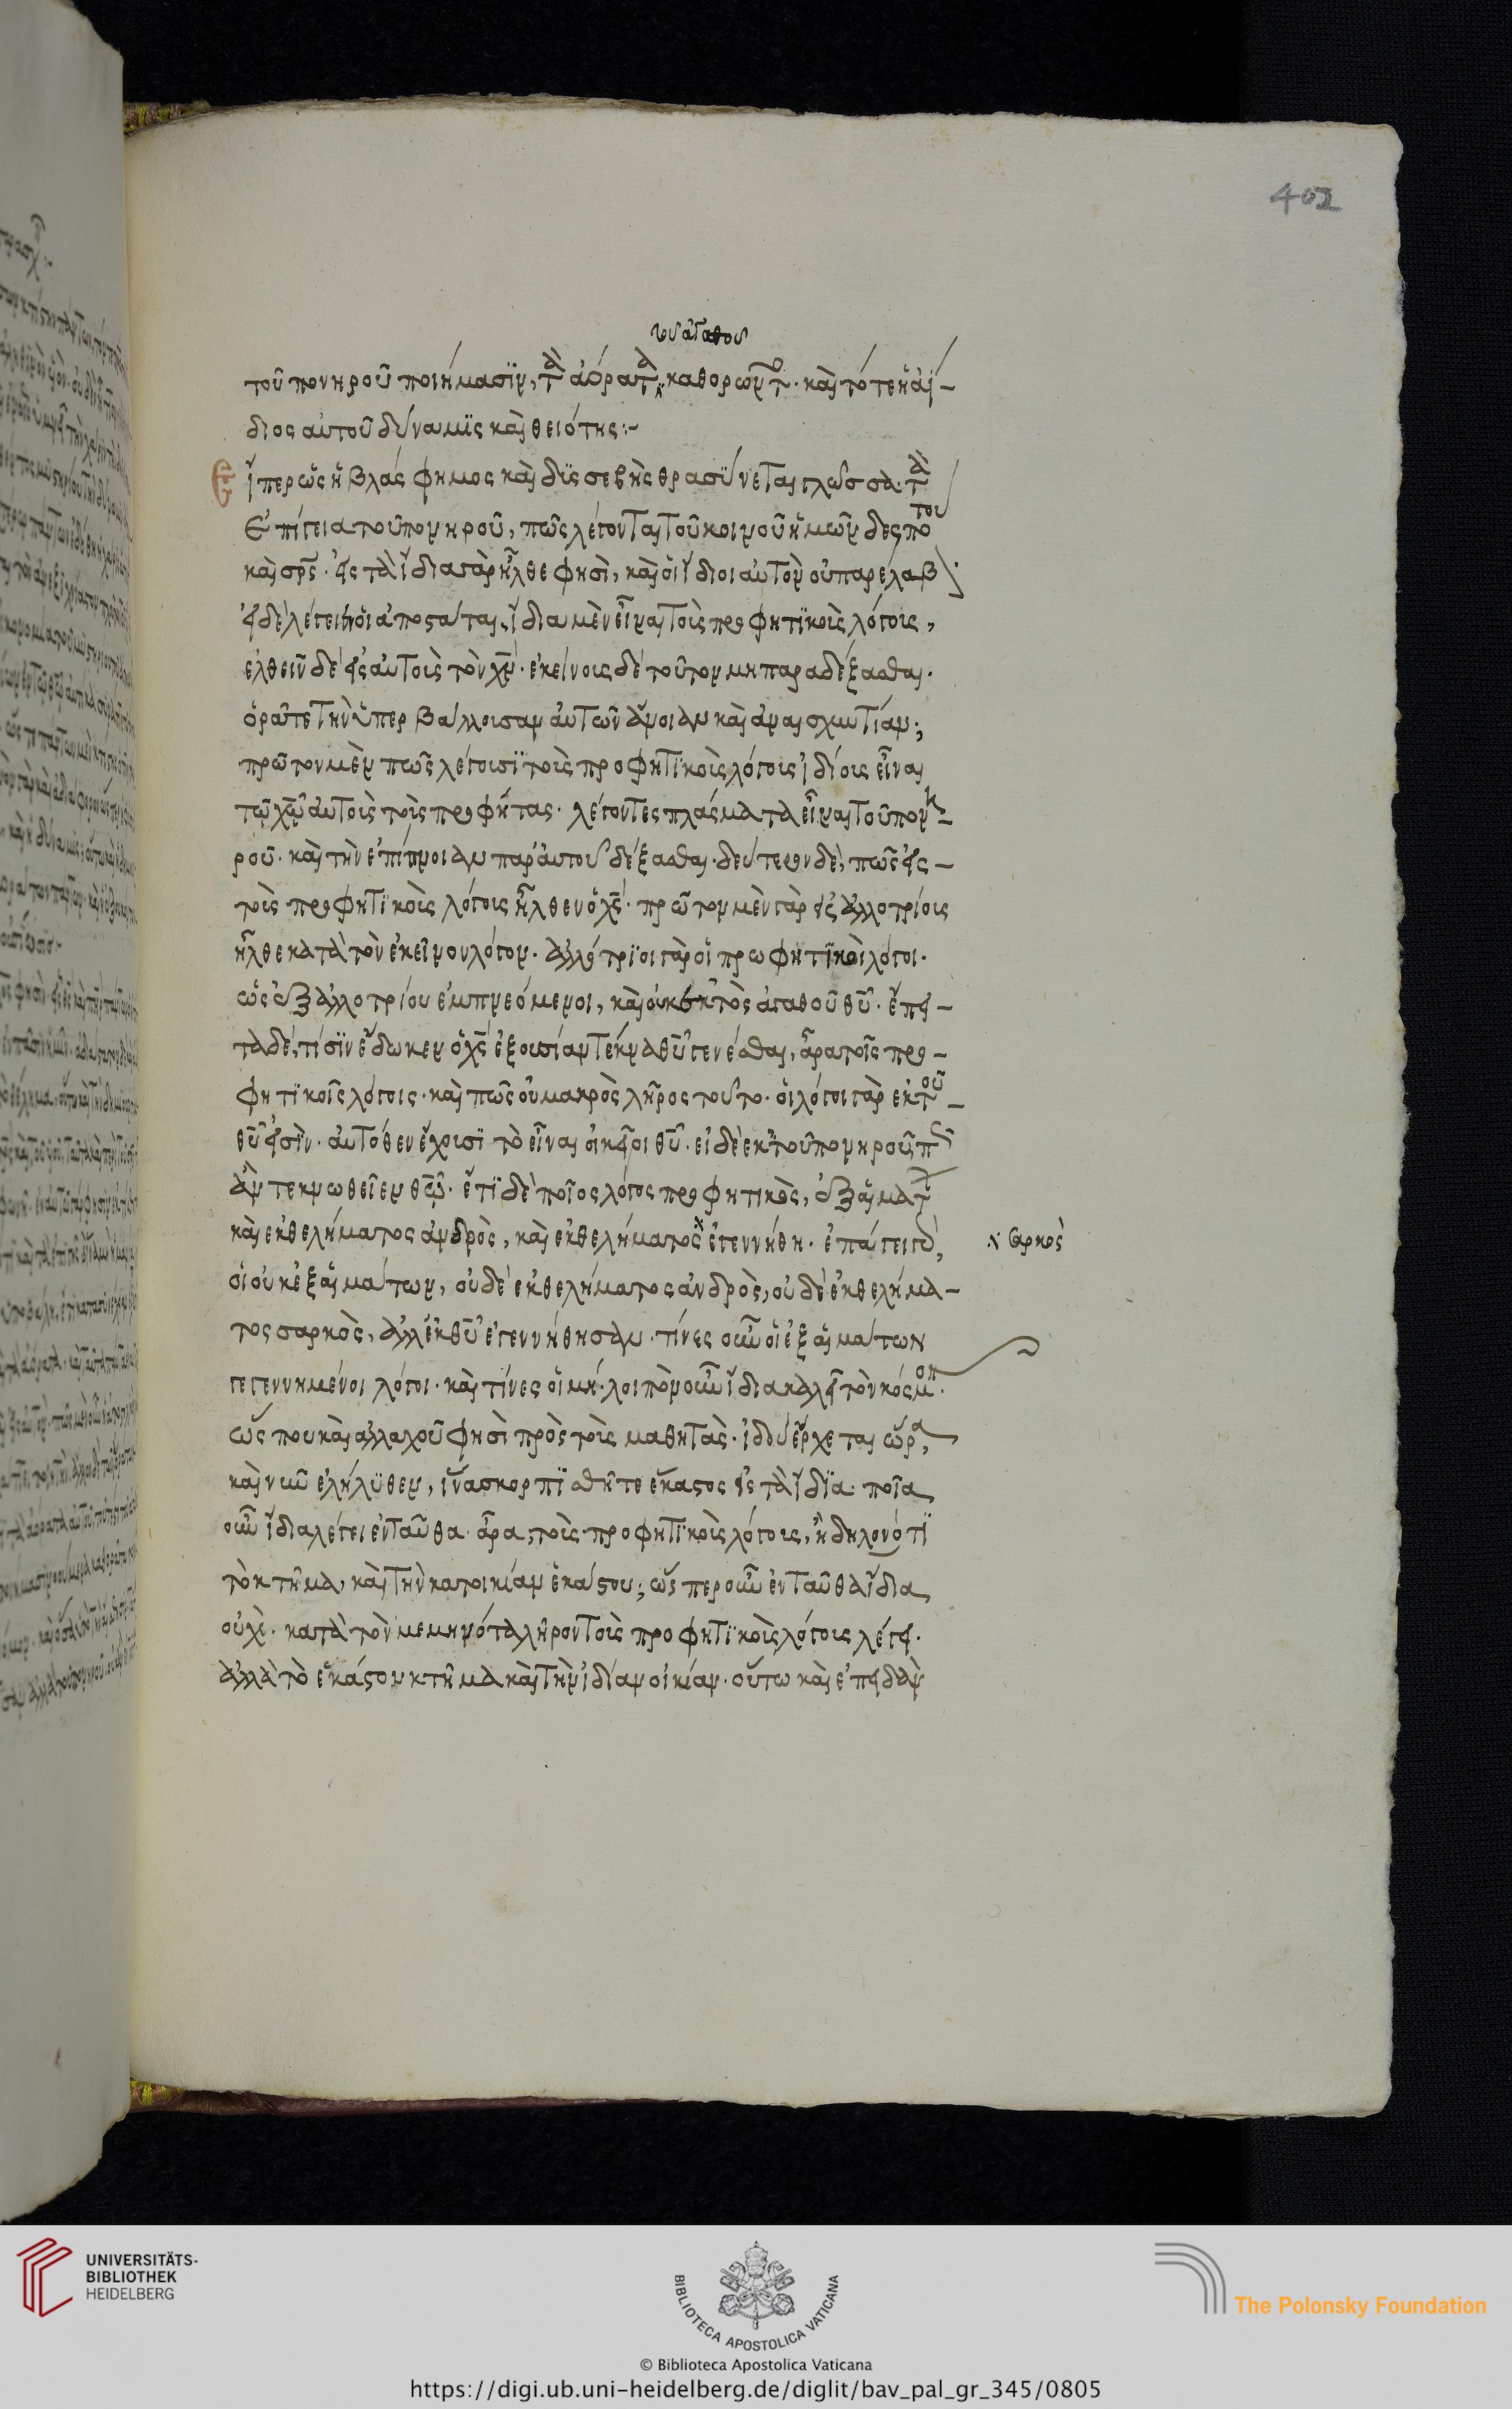 402
τοῦ ἀγαθοῦ
τοῦ πονηροῦ ποιήμασϊν, τὰ ἀόρατα καθορῶντ. καὶ τότε ἡ ἀΐ-
διος αὐτοῦ δύναμϊς καὶ θειότης:-
Εἴπερ ὡς ἡ βλάσφημος καὶ δϋσσεβὴς θρασϋνεται γλῶσσα. τὰ
ἐπίγεια τοῦ πονηροῦ, πῶς λέγονται τοῦ κοινοῦ ἡμῶν δεσπότου
καὶ σρς. εἰς τὰ ἴδια γὰρ ἦλθε φησὶ, καὶ οἱ ἴδιοι αὐτὸν οὐ παρέλαβ
εἰ δὲ λέγει οἱ ἀποστάται, ἴδια μὲν εἶναι τοῖς προφητϊκοῖς λόγοις,
ἐλθεῖν δὲ εἰς αὐτοὺς τὸν χν. ἐκείνους δὲ τοῦτον μὴ παραδέξασθαι.
ὁρᾶτε τὴν ὑπερβάλλουσαν αὐτῶν ἄνοιαν καὶ ἀναισχυντίαν;
πρῶτον μὲν πῶς λέγουσϊ τοὺς προφητϊκοὺς λόγους ἰδίους εἶναι
τῷ χω αὐτοὺς τοὺς προφήτας. λέγοντες πλάσματα εἶναι τοῦ πονη-
ροῦ. καὶ τὴν ἐπίπνοιαν παρ' αὐτοῦ δέξασθαι. δεύτερον δὲ, πῶς εἰς
τοὺς προφητϊκοὺς λόγους ἦλθεν ὁ χς. πρῶτον μὲν γὰρ εἰς ἀλλοτρίους
ἦλθε κατὰ τὸν ἐκεῖνον λόγον. ἀλλότριοι γὰρ οἱ προφητϊκοὶ λόγοι.
ὡς ἐξ ἀλλοτρίου ἐμπνεόμενοι, καὶ οὐκ ἐκ τοῦ ἀγαθοῦ θυ. ἔπει-
τα δὲ, τίσϊν ἔδωκεν ὁ χς ἐξουσίαν τέκνα θυ γενέσθαι, ἆρα τοῖς προ-
φητϊκοῖς λόγοις. καὶ πῶς οὐ μακρὸς λῆρος τοῦτο. οἱ λόγοι γὰρ ἐκ τοῦ
θυ εἰσϊν. αὐτόθεν ἔχουσϊ τὸ εἶναι οἰκεῖοι θυ. εἰ δὲ ἐκ τοῦ πονηροῦ, π
ἂν τεκνωθεῖεν θω. ἔτϊ δὲ ποῖος λόγος προφητικὸς, ἐξ αἵματ
καὶ ἐκ θελήματος ἀνδρὸς, καὶ ἐκ θελήματος ἐγεννήθη. ἐπάγει γὰρ,
σαρκὸς
οἳ οὐκ ἐξ αἱμάτων, οὐδὲ ἐκ θελήματος ἀνδρὸς, οὐδὲ ἐκ θελήμα-
τος σαρκὸς, ἀλλ' ἐκ θυ ἐγεννήθησαν. τίνες οὖν οἱ ἐξ αἱμάτων
γεγεννημένοι λόγοι. καὶ τίνες οἱ μή. λοιπὸν οὖν ἴδια καλεῖ τὸν κόσμον.
ὥς που καὶ ἀλλαχοῦ φησὶ πρὸς τοὺς μαθητὰς. ἰδοὺ ἔρχεται ὥρα,
καὶ νῦν ἐλήλϋθεν, ἵνα σκορπϊσθῆτε ἕκαστος εἰς τὰ ἴδϊα. ποῖα
οὖν ἴδια λέγει ἐνταῦθα. ἆρα τοὺς προφητϊκοὺς λόγους, ἢ δηλονότϊ
τὸ κτῆμα, καὶ τὴν κατοικίαν ἑκάστου; ὥσπερ οὖν ἐνταῦθα ἴδια
οὐχὶ. κατὰ τὸν μεμηνότα λῆρον τοὺς προφητϊκοὺς λόγους λέγει.
ἀλλὰ τὸ ἑκάστου κτῆμα καὶ τὴν ἰδίαν οἰκίαν. οὕτω καὶ ἐπειδὰν
UNIVERSITÄTS-
BIBLIOTHEK
HEIDELBERG
BIBLIOTECA APOSTOLICA VATICANA
The Polonsky Foundation
© Biblioteca Apostolica Vaticana
https://digi.ub.uni-heidelberg.de/diglit/bav_pal_gr_345/0805